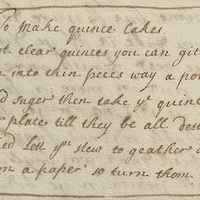 To make quince Cakes
clear quinces you can git
into thin peces way a po
suger then take yͤ quin
plates till they be all des
Lett yᵐ slew to geather
a paper so turn them